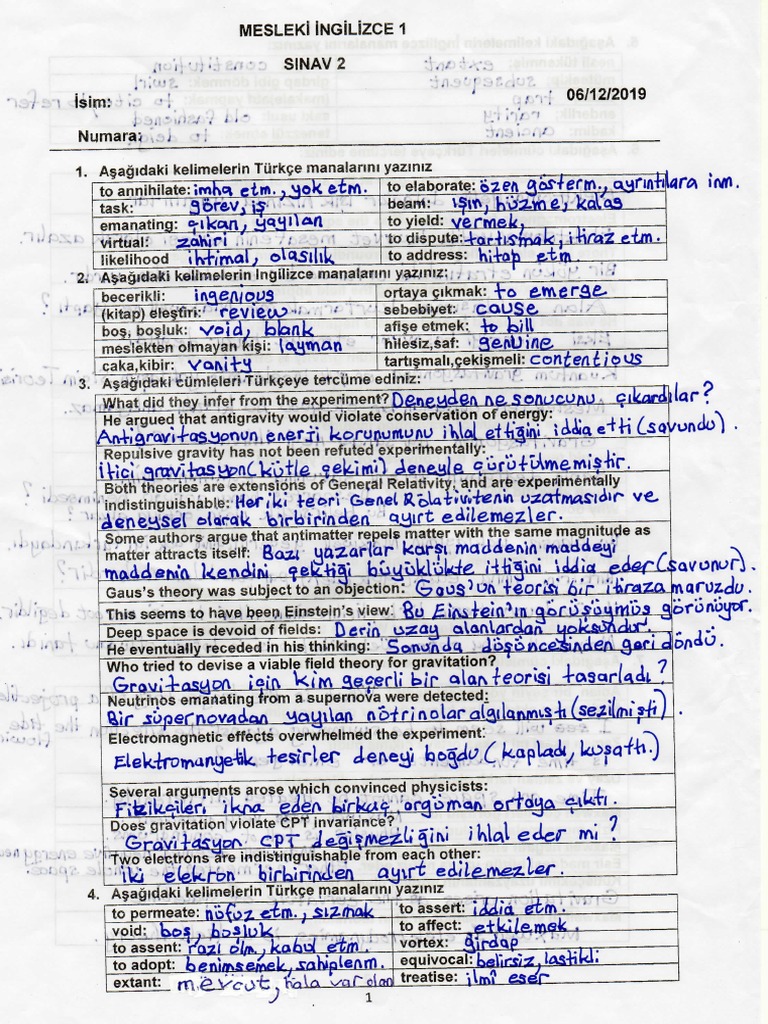 MESLEKİ İNGİLİZCE 1
SINAV 2
İsim: 06/12/2019
Numara:
1. Aşağıdaki kelimelerin Türkçe manalarını yazınız
to annihilate: imha etm., yok etm. to elaborate: özen gösterm., ayrıntılara inm.
task: görev, iş beam: ışın, hüzme, kalas
emanating: çıkan, yayılan to yield: vermek,
virtual: zahiri to dispute: tartışmak, itiraz etm.
likelihood ihtimal, olasılık to address: hitap etm
2. Aşağıdaki kelimelerin İngilizce manalarını yazınız:
becerikli: ingenious ortaya çıkmak: to emerge
(kitap) eleştiri: review sebebiyet: cause
boş, boşluk: void, blank afişe etmek: to bill
meslekten olmayan kişi: layman hilesiz,saf: genuine
caka,kibir: vanity tartışmalı,çekişmeli: contentious
3. Aşağıdaki cümleleri Türkçeye tercüme ediniz:
What did they infer from the experiment? Deneyden ne sonucunu çıkardılar?
He argued that antigravity would violate conservation of energy:
Antigravitasyonun enerji korunumunu ihlal ettiğini iddia etti (savundu).
Repulsive gravity has not been refuted experimentally:
İtici gravitasyon (kütle çekimi) deneyle çürütülmemiştir.
Both theories are extensions of General Relativity, and are experimentally
indistinguishable: Her iki teori Genel Rölativitenin uzatmasıdır ve
deneysel olarak birbirinden ayırt edilemezler.
Some authors argue that antimatter repels matter with the same magnitude as
matter attracts itself: Bazı yazarlar karşı maddenin maddeyi
maddenin kendini çektiği büyüklükte ittiğini iddia eder (savunur).
Gaus's theory was subject to an objection: Gaus'un teorisi bir itiraza maruzdu.
This seems to have been Einstein's view: Bu Einstein'ın görüşüymüş görünüyor.
Deep space is devoid of fields: Derin uzay alanlardan yoksundur.
He eventually receded in his thinking: Sonunda düşüncesinden geri döndü.
Who tried to devise a viable field theory for gravitation?
Gravitasyon için kim geçerli bir alan teorisi tasarladı?
Neutrinos emanating from a supernova were detected:
Bir süpernovadan yayılan nötrinolar algılanmıştı (sezilmişti).
Electromagnetic effects overwhelmed the experiment:
Elektromanyetik tesirler deneyi boğdu (kapladı, kuşattı.)
Several arguments arose which convinced physicists:
Fizikçileri ikna eden birkaç argüman ortaya çıktı.
Does gravitation violate CPT invariance?
Gravitasyon CPT değişmezliğini ihlal eder mi?
Two electrons are indistinguishable from each other:
İki elekron birbirinden ayırt edilemezler.
4. Aşağıdaki kelimelerin Türkçe manalarını yazınız
to permeate: nüfuz etm., sızmak to assert: iddia etm.
void: boş, boşluk to affect: etkilemek.
to assent: razı olm, kabul etm. vortex: girdap
to adopt: benimsemek, sahiplenm. equivocal: belirsiz, lastikli
extant: mevcut, hala var olan treatise: ilmî eser
1